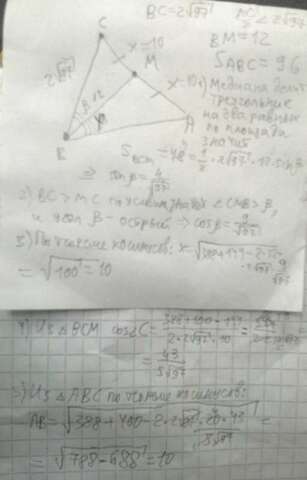 BC=2√97
BM=12
S ABC=96
C
x=10
M
2√97
β 12
B
A
1) Медиана делит
треугольник
на два равных
по площади
значит
S BCM =48=1/2·2√97·12·sinβ
⇒ sinβ=4/√97
2) BC>MC по условию, значит ∠CMB>β,
и угол β-острый ⇒ cosβ=9/√97
3) По теореме косинусов: x=
=√100=10
4) Из △BCM cos∠C=(388+100-144)/(2·2√97·10)=
=43/5√97
5) Из △ABC по теореме косинусов:
AB=√388+400-2·2√97·20·43/5√97=
=√788-688=10